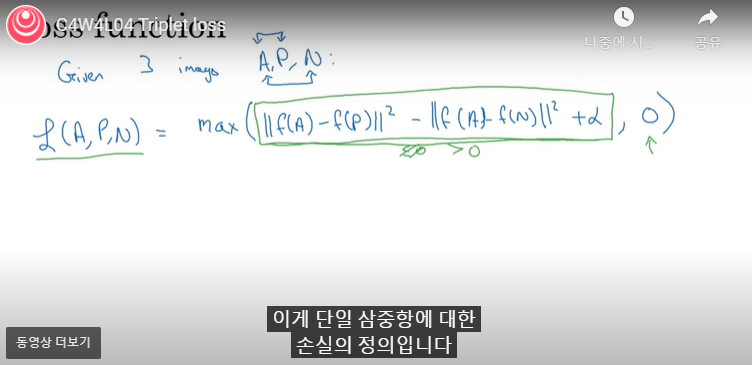 C4W4L04 Triplet loss
oss function
나중에 시...
공유
Given 3 images A, P, N:
L(A,P,N) = max(||f(A)-f(P)||² - ||f(A)-f(N)||² + α, 0)
≤0 >0 ↑
이게 단일 삼중항에 대한
손실의 정의입니다
동영상 더보기